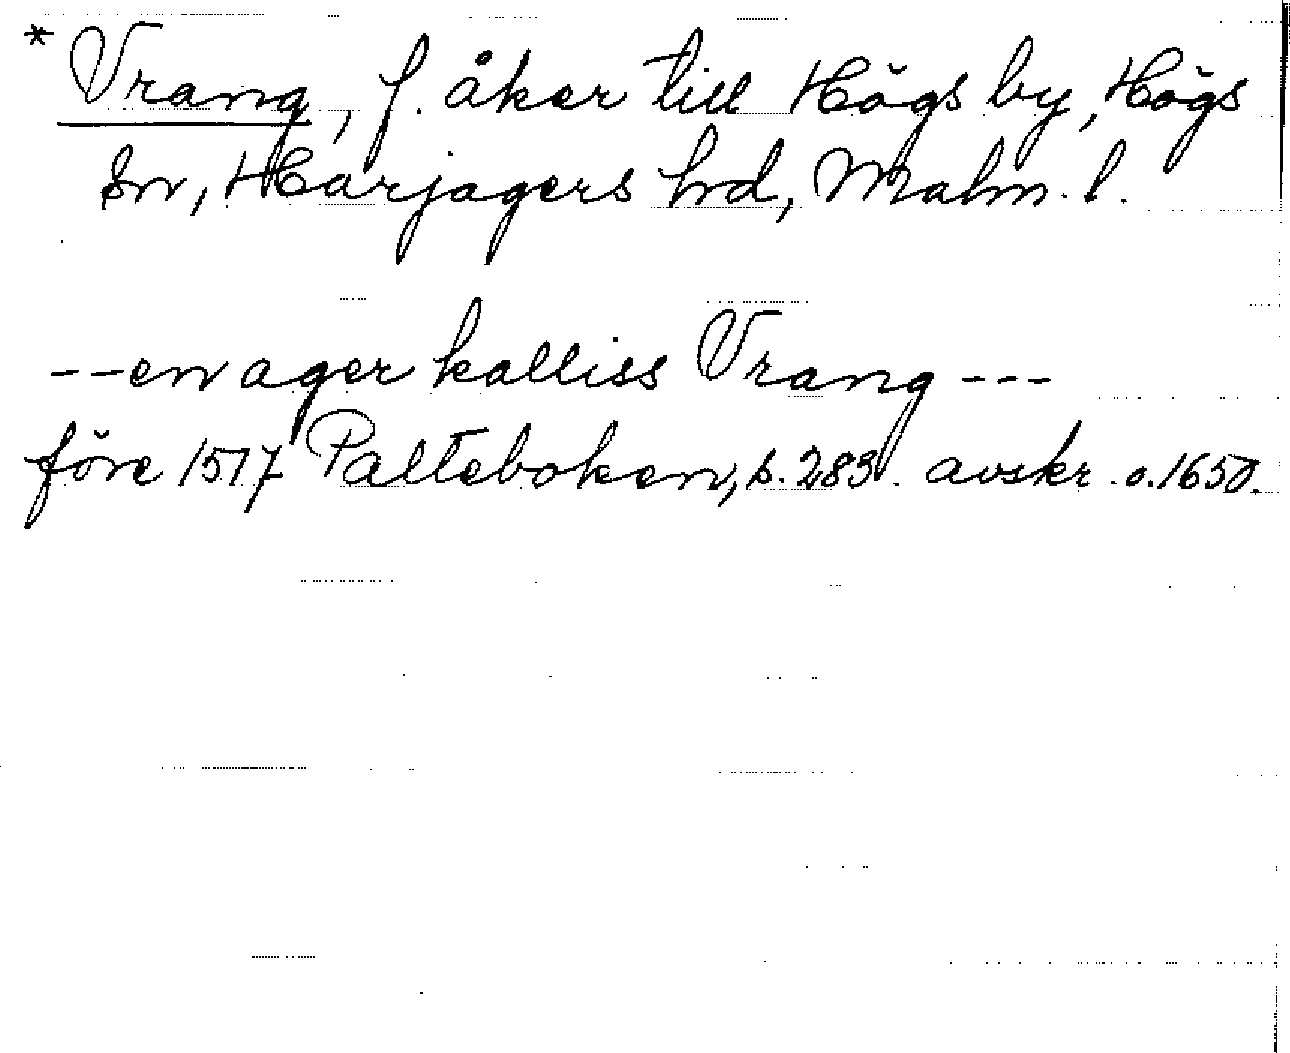 * Vrang, f. åker till Högs by, Högs
sn, Harjagers hd, Malm. l.
--en ager kalliss Vrang ---
före 1517 Palteboken, s. 283. avskr. o. 1650.